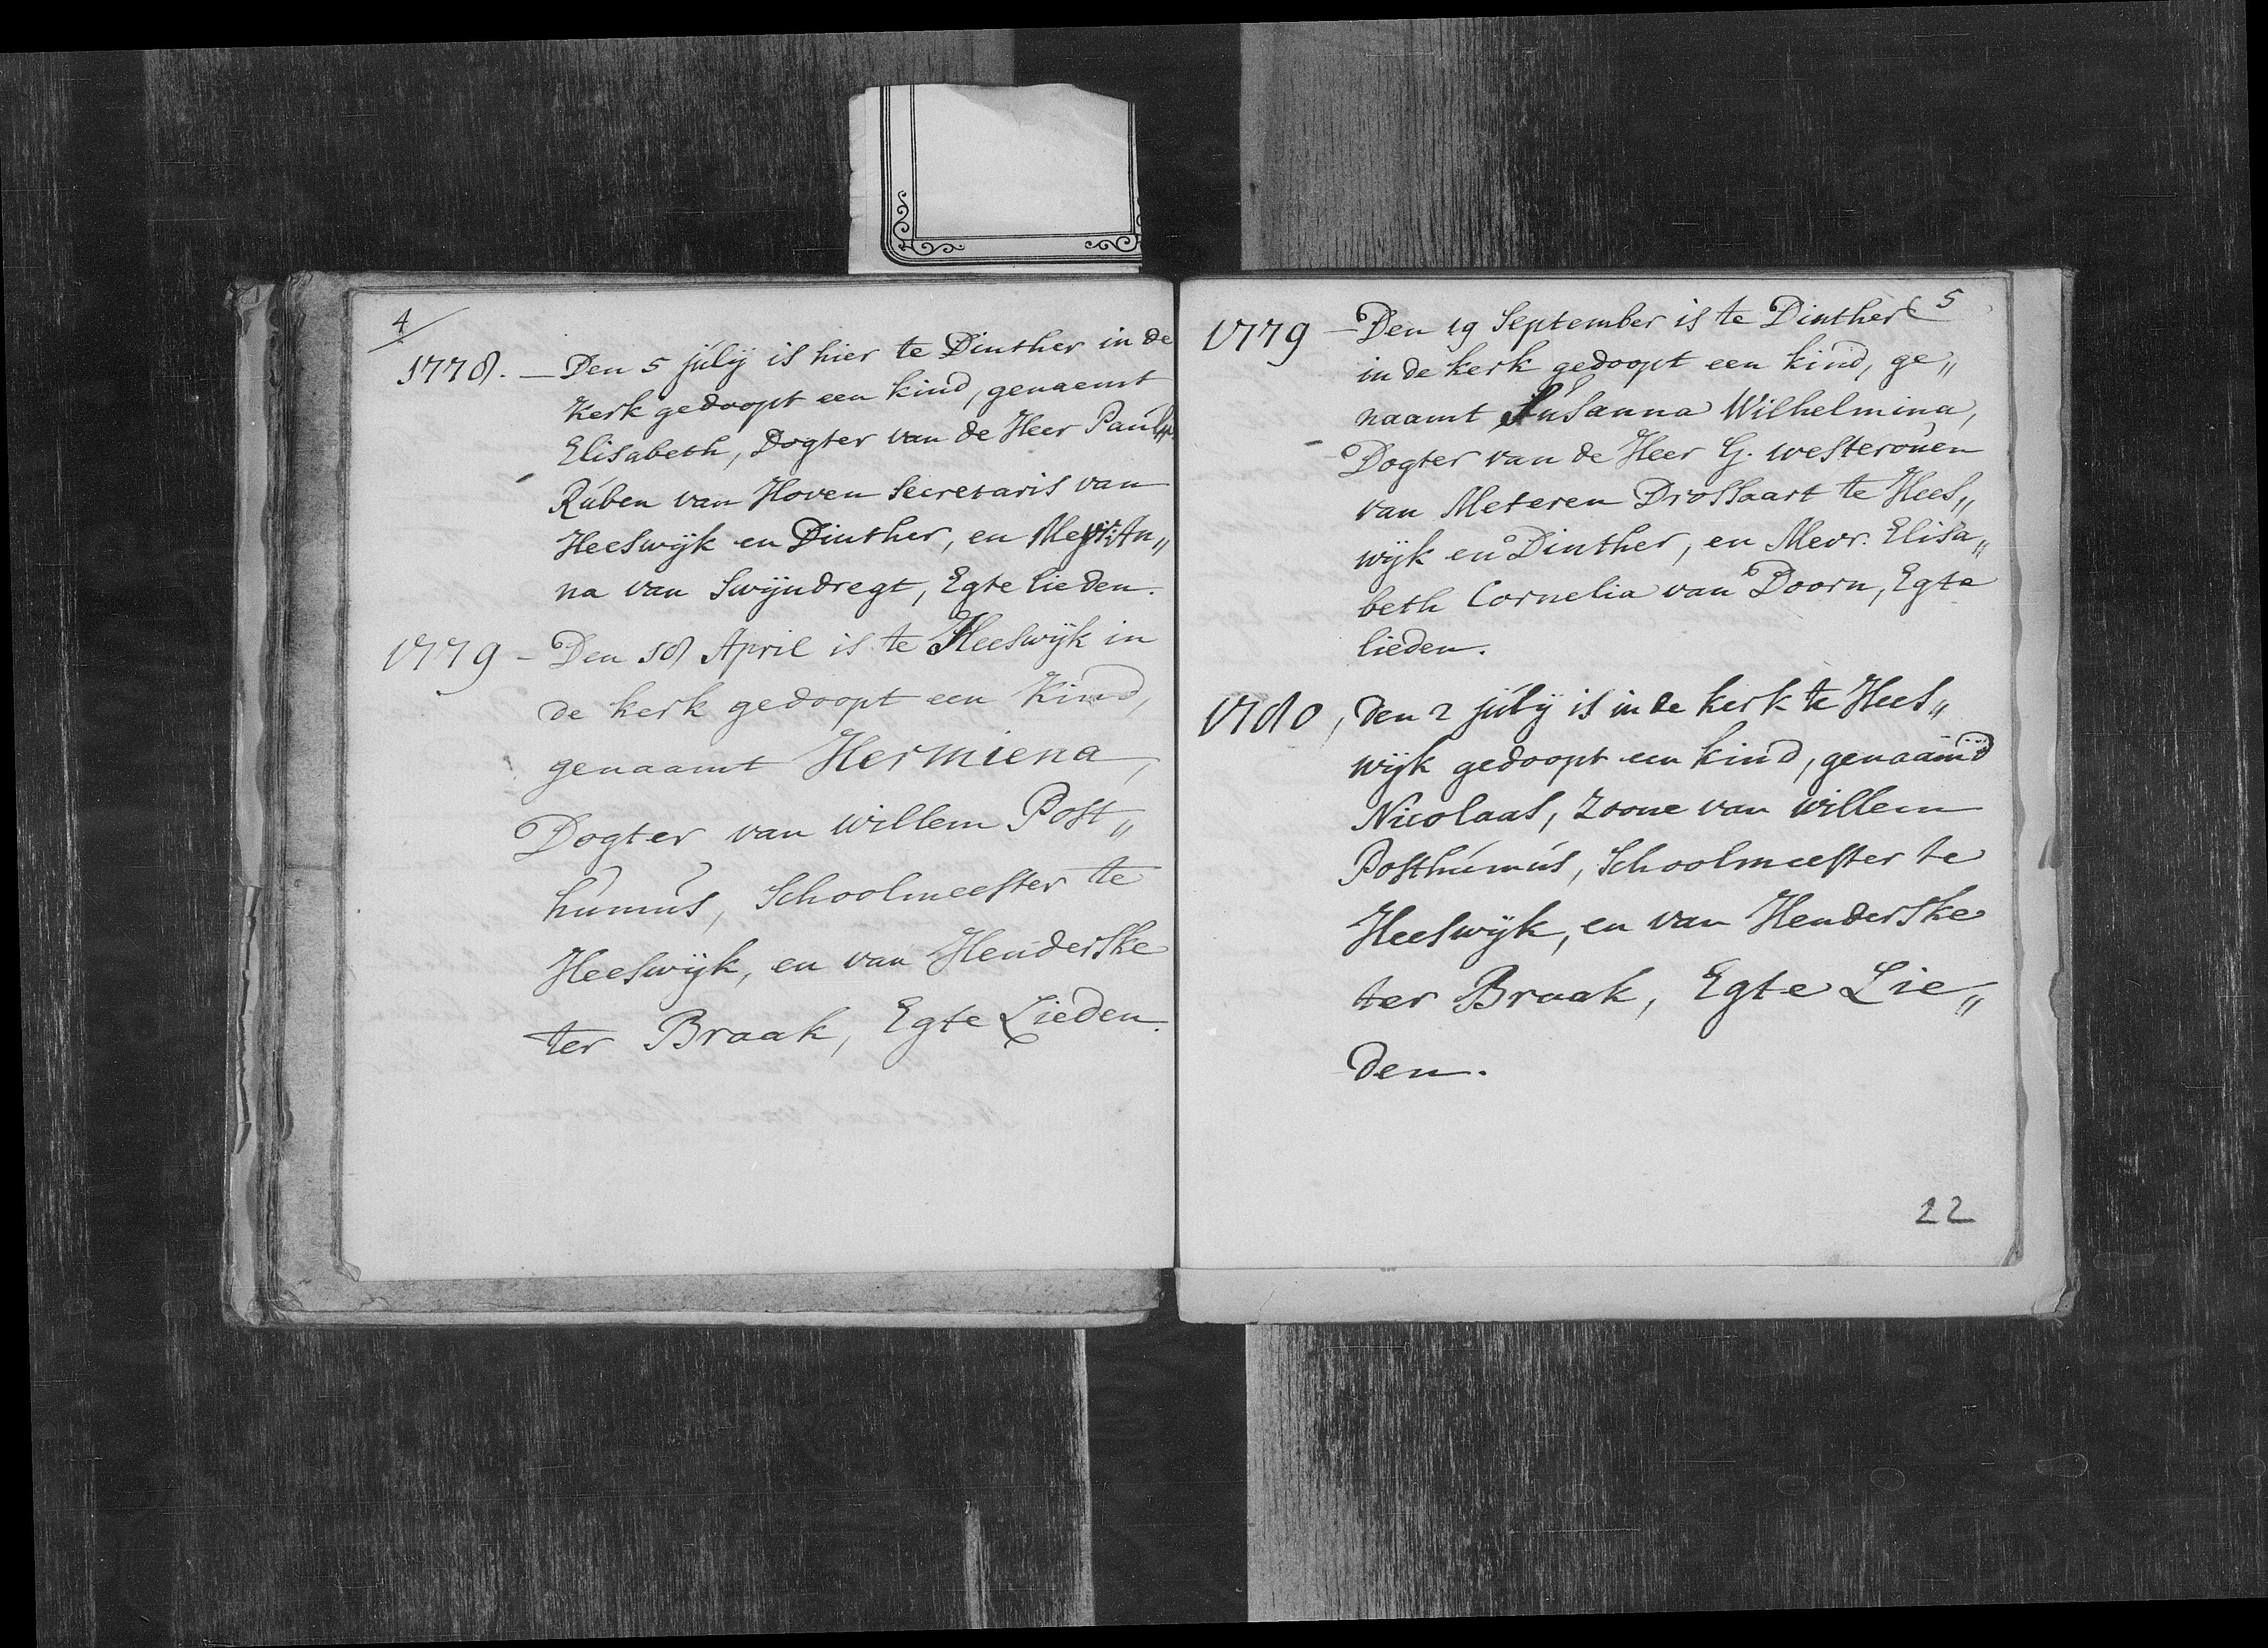 4
1778. — Den 5 júlÿ is hier te Dinther in de
Kerk gedoopt een kind, genaemt
Elisabeth, Dogter van de Heer
Rúben van Hoven Secretaris van
Heeswÿk en Dinther, en An„
na van Swÿndregt, Egte lieden.
1779 – Den 18 April is te Heeswÿk in
de kerk gedoopt een Kind,
genaamt Hermiena,
Dogter van willem Post„
humus, Schoolmeester te
Heeswÿk, en van Henderske
ter Braak, Egte Lieden.
5
1779 – Den 19 September is te Dinther
in de kerk gedoopt een kind, ge„
naamt Susanna Wilhelmina,
Dogter van de Heer G. westerouen
van Meteren Drossaart te Hees„
wÿk en Dinther, en Mevr. Elisa„
beth Cornelia van Doorn, Egte
lieden.
1780, den 2 júlÿ is in de kerk te Hees„
wÿk gedoopt een kind, genaamd
Nicolaas, Zoone van willem
Posthúmús, Schoolmeester te
Heeswÿk, en van Henderske
ter Braak, Egte Lie„
den.
22